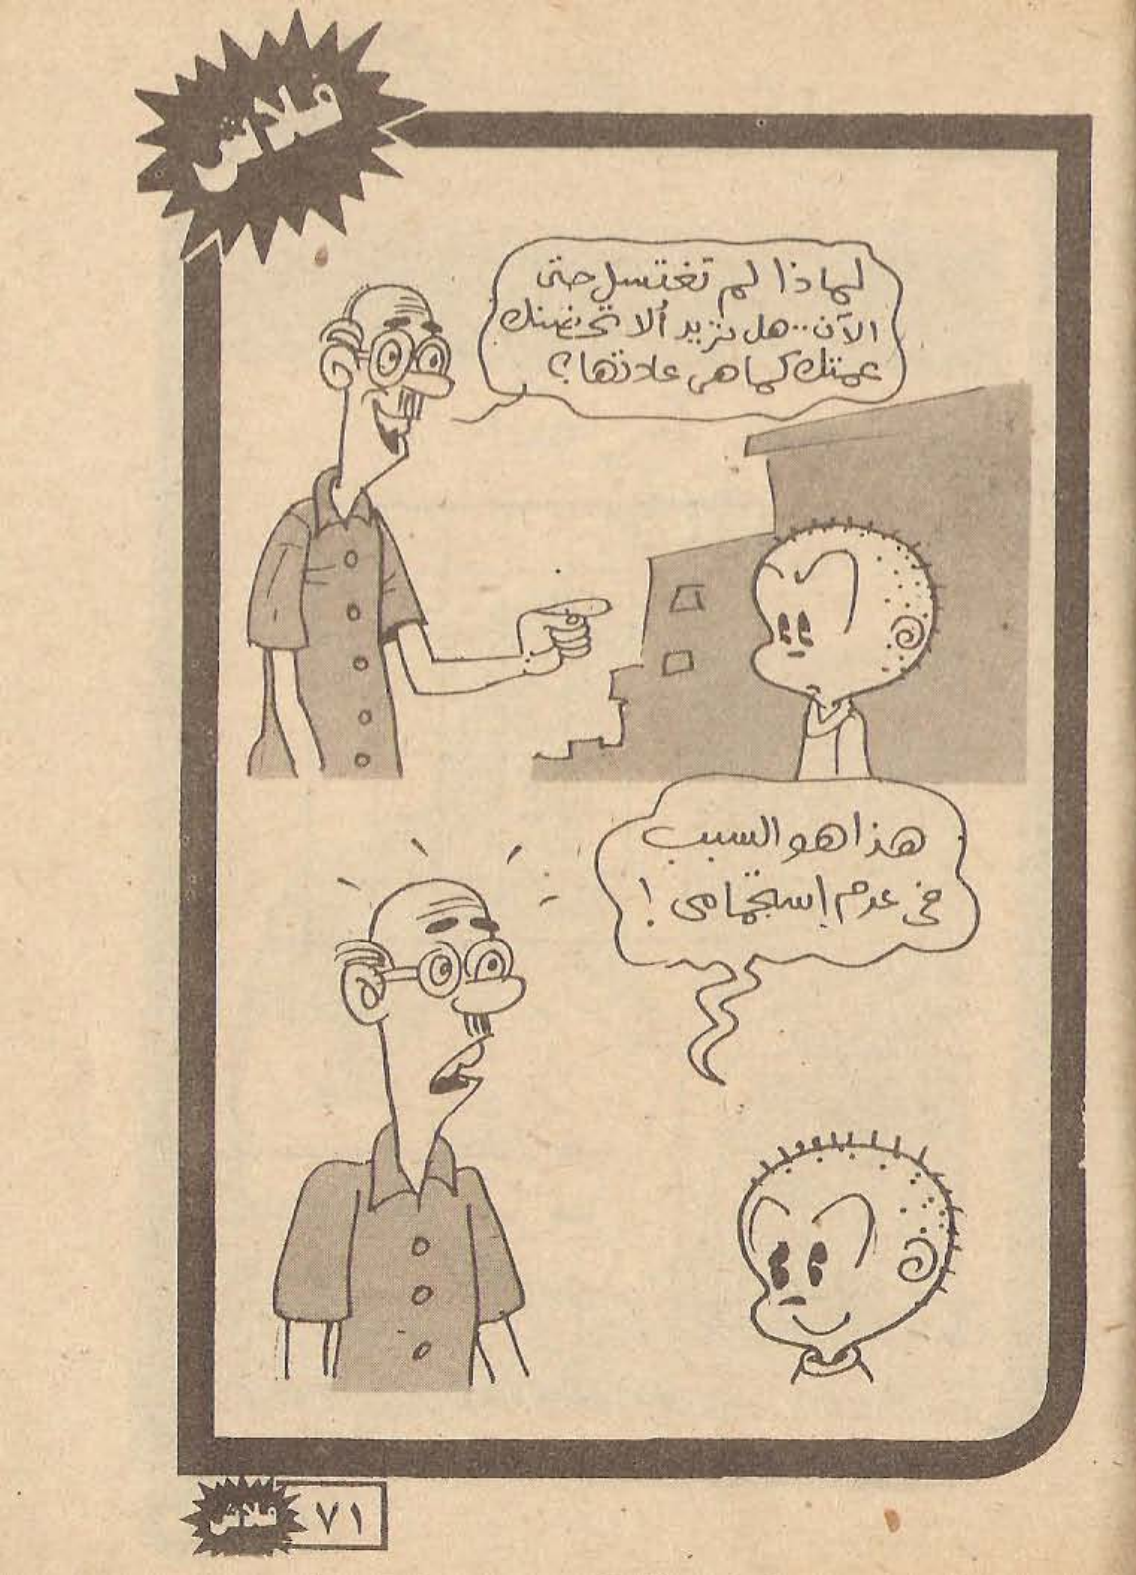 فلاش
لماذا لم تغتسل حتى
الآن.. هل تريد ألا تحضنك
عمتك كما هى عادتها؟
هذا هو السبب
فى عدم إستحمامى!
فلاش ٧١